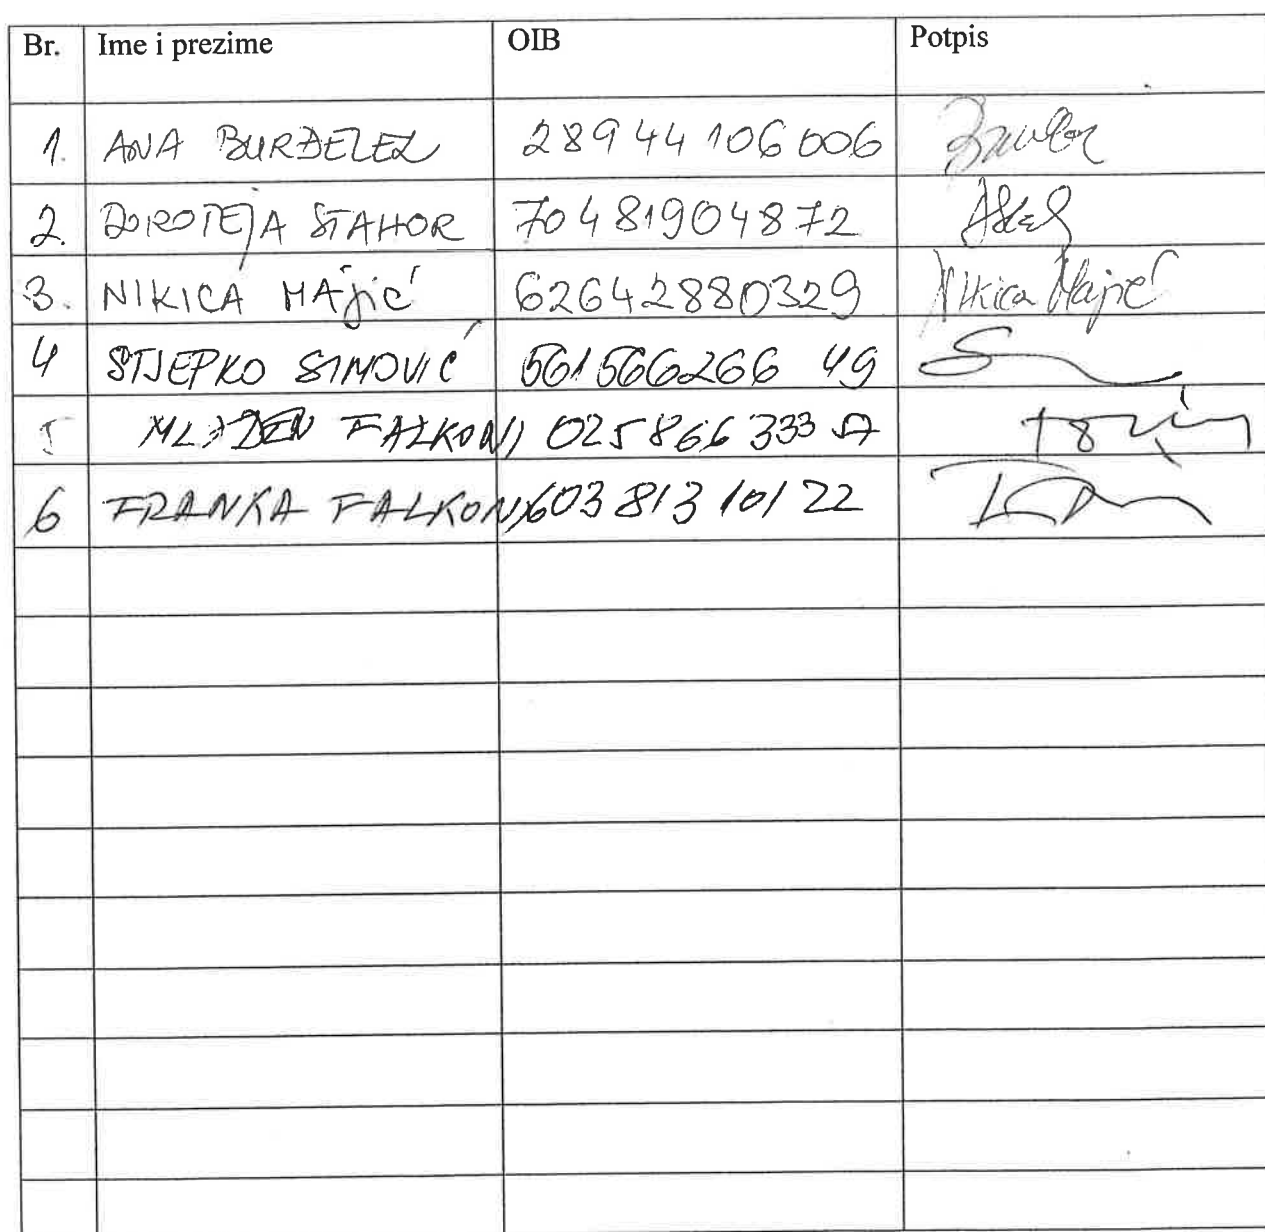 Br. Ime i prezime OIB Potpis
1. ANA BURĐELEZ 28944106006
2. DOROTEJA STAHOR 70481904872
3. NIKICA MAjić 62642880329 Nikica Majić
4 STJEPKO SIMOVIĆ 56156626649
5 MLADEN FALKONI
6 FRANKA FALKONI 60381310122